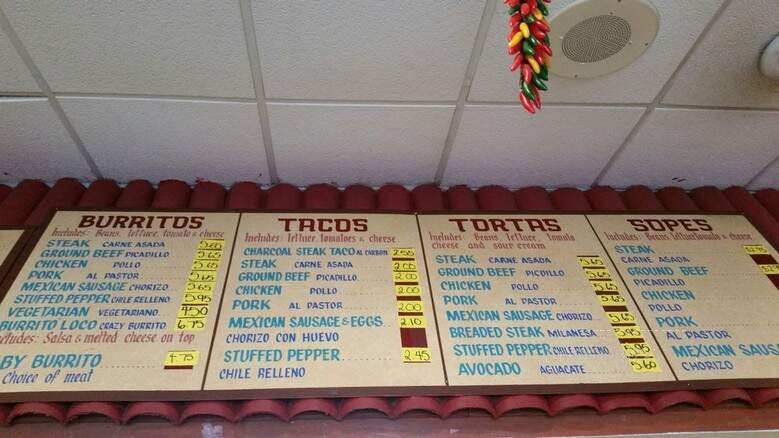 BURRITOS
Includes: Beans, lettuce, tomato & cheese
STEAK CARNE ASADA 5.65
GROUND BEEF PICADILLO 5.65
CHICKEN POLLO 5.65
PORK AL PASTOR 5.65
MEXICAN SAUSAGE CHORIZO 5.65
STUFFED PEPPER CHILE RELLENO 5.95
VEGETARIAN VEGETARIANO 4.50
BURRITO LOCO CRAZY BURRITO 6.75
Includes: Salsa & melted cheese on top
BY BURRITO 4.75
Choice of meat
TACOS
Includes: lettuce, tomatoes & cheese
CHARCOAL STEAK TACO AL CARBON 2.55
STEAK CARNE ASADA 2.00
GROUND BEEF PICADILLO 2.00
CHICKEN POLLO 2.00
PORK AL PASTOR 2.00
MEXICAN SAUSAGE & EGGS 2.10
CHORIZO CON HUEVO
STUFFED PEPPER 2.45
CHILE RELLENO
TORTAS
Includes: beans, lettuce, tomato
cheese and sour cream
STEAK CARNE ASADA 5.65
GROUND BEEF PICDILLO 5.65
CHICKEN POLLO 5.65
PORK AL PASTOR 5.65
MEXICAN SAUSAGE CHORIZO 5.65
BREADED STEAK MILANESA 5.95
STUFFED PEPPER CHILE RELLENO 5.95
AVOCADO AGUACATE 5.60
SOPES
Includes: Beans lettuce tomato & cheese
STEAK
CARNE ASADA
GROUND BEEF
PICADILLO
CHICKEN
POLLO
PORK
AL PASTOR
MEXICAN SAUS
CHORIZO